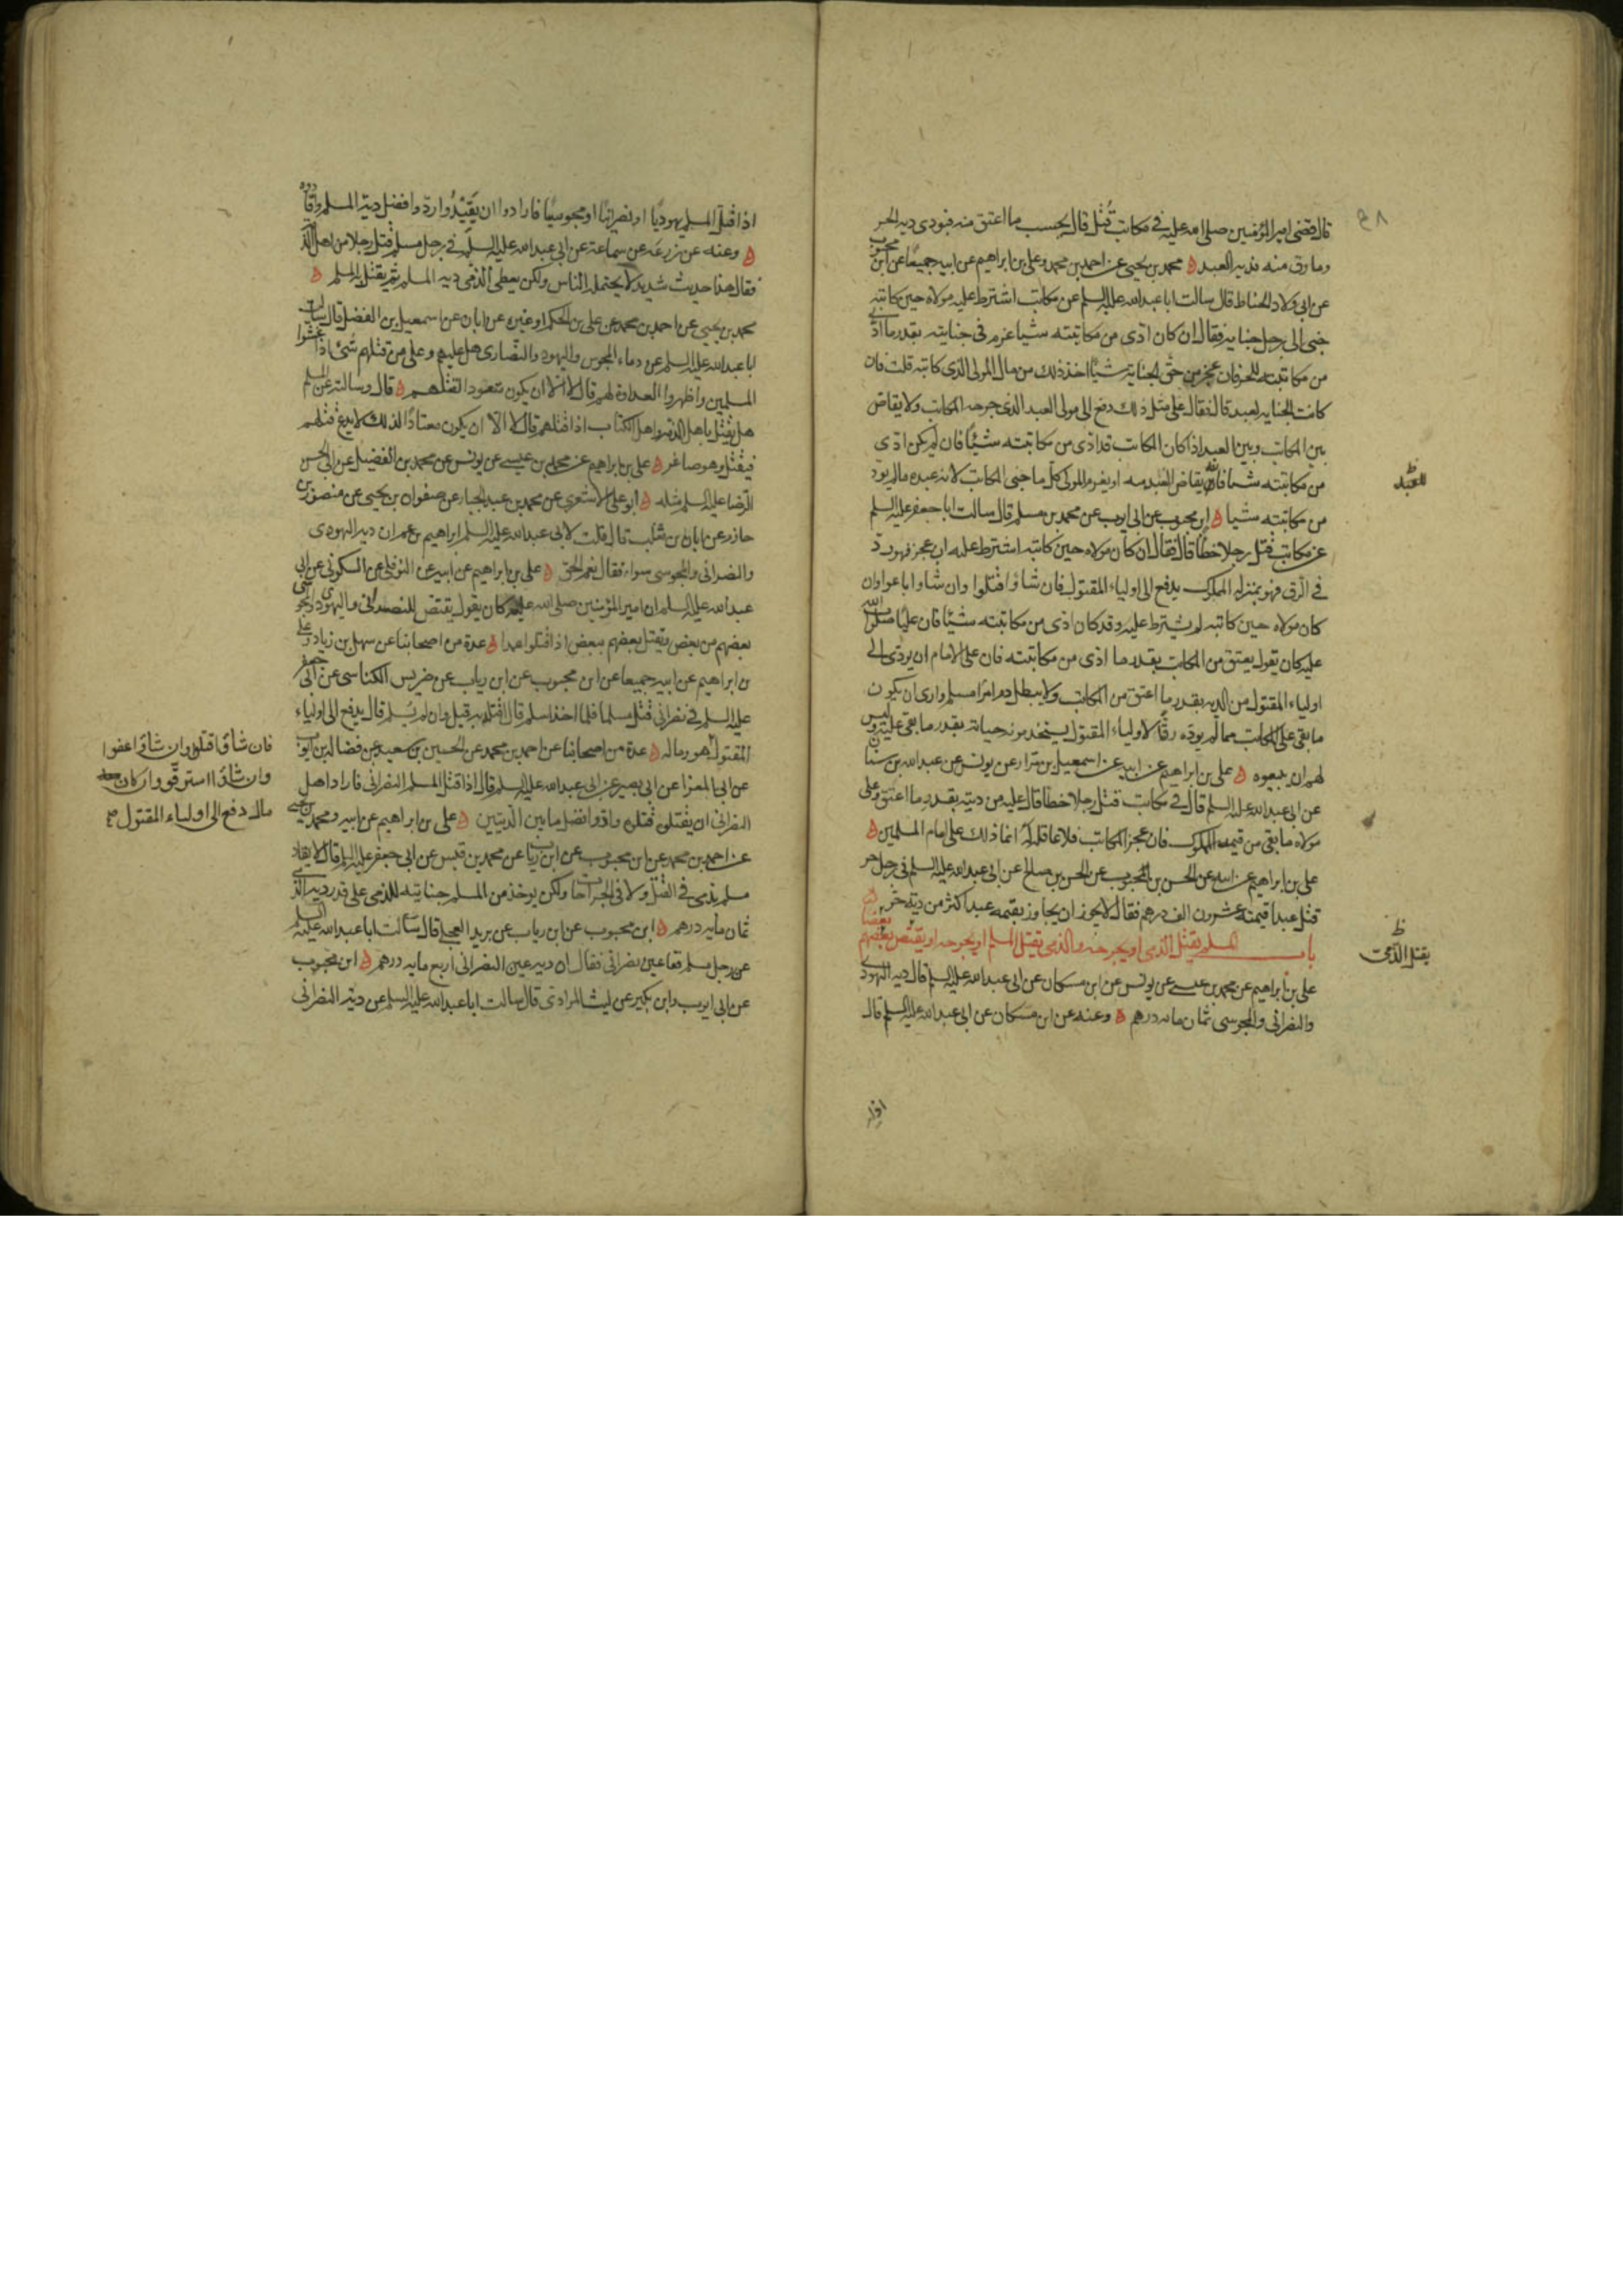 قال قضى امير المؤمنين صلى الله عليه في مكاتب قُتل قال يحسب ما اعتق منه فيودى ديه الحر
وما رق منه فديه العبد ه محمد بن يحيى عن احمد بن محمد وعلى بن ابراهيم عن ابيه جميعا عن ابن محبوب
عن ابى ولاد الحناط قال سالت ابا عبد الله عليه السلم عن مكاتب اشترط عليه مولاه حين كاتبه
جنى الى رجل جنايه فقال ان كان ادّى من مكاتبته شيا غرم فى جنايته بقدر ما ادّى
من مكاتبته للحر فان عجز من حق الجناية شيئًا اخذ ذلك من مال المولى الذى كاتبه قلت فان
كانت الجنايه لعبد قال فقال على مثل ذلك دفع الى مولى العبد الذى جرحه المكاتب ولا يقاص
بين المكاتب وبين العبد اذا كان المكاتب قد ادى من مكاتبته شيئًا فان لم يكن ادّى
من مكاتبته شيا فانه يقاص للعبد منه او يغرم المولى كل ما جنى المكاتب لانه عبده ما لم يودّ
للعبد
من مكاتبته شيا ه ابن محبوب عن ابى ايوب عن محمد بن مسلم قال سالت ابا جعفر عليه السلم
عن مكاتب قتل رجلا خطأ قال فقال ان كان مولاه حين كاتبه اشترط عليه ان عجز فهو ردّ
في الرّق فهو بمنزله المملوك يدفع الى اولياء المقتول فان شاؤا قتلوا وان شاوا باعوا وان
كان مولاه حين كاتبه لم يشترط عليه وقد كان ادى من مكاتبته شيئا فان عليًا صلوات الله
عليه كان يقول يعتق من المكاتب بقدر ما ادى من مكاتبته فان على الامام ان يودّى الى
اولياء المقتول من الديه بقدر ما اعتق من المكاتب ولا يبطل دم امرء مسلم وارى ان يكون
ما بقى على المكاتب مما لم يوده رقًا لاولياء المقتول يستخدمونه حياته بقدر ما بقى عليه وليس
لهم ان يبيعوه ه على بن ابراهيم عن ابيه عن اسمعيل بن مرّار عن يونس عن عبد الله بن سنان
عن ابى عبد الله عليه السلم قال في مكاتب قتل رجلا خطأ قال عليه من ديته بقدر ما اعتق وعلى
مولاه ما بقى من قيمه المملوك فان عجز المكاتب فلا عاقلة له انما ذلك على امام المسلمين ه
على بن ابراهيم عن ابيه عن الحسن بن محبوب عن الحسن بن صالح عن ابى عبد الله عليه السلم فى رجل حر
قتل عبدا قيمته عشرون الف درهم فقال لا يجوز ان يجاوز بقيمه عبد اكثر من دية حر ه
باب المسلم يقتل الذمى او يجرحه والذمى يقتل المسلم او يجرحه او يقتص بعضهم بعضا
يقتل الذمى
على بن ابراهيم عن محمد بن عيسى عن يونس عن ابن مسكان عن ابى عبد الله عليه السلم قال ديه اليهودى
والنصرانى والمجوسى ثمان مائه درهم ه وعنه عن ابن مسكان عن ابى عبد الله عليه السلم قال
اذا قتل المسلم يهوديًا او نصرانيًا او مجوسيًا فارادوا ان يقيدوا ردّوا فضل دية المسلم واقادوه
ه وعنه عن زرعه عن سماعة عن ابى عبد الله عليه السلم في رجل مسلم قتل رجلا من اهل الذمة
فقال هذا حديث شديد لا يحتمله الناس ولكن يعطى الذمى ديه المسلم ثم يقتل به المسلم ه
محمد بن يحيى عن احمد بن محمد عن على بن الحكم او غيره عن ابان عن اسمعيل بن الفضل قال سالت
ابا عبد الله عليه السلم عن دماء المجوس واليهود والنصارى هل عليهم وعلى من قتلهم شئ اذا غشوا
المسلمين واظهروا العداوة لهم قال لا الا ان يكون متعودا لقتلهم ه قال وسالته عن المسلم
هل يقتل باهل الذمه واهل الكتاب اذا قتلهم قال لا الا ان يكون معتادًا لذلك لا يدع قتلهم
فيقتل وهو صاغر ه على بن ابراهيم عن محمد بن عيسى عن يونس عن محمد بن الفضيل عن ابى الحسن
الرضا عليه السلم مثله ه ابو على الاشعرى عن محمد بن عبد الجبار عن صفوان بن يحيى عن منصور بن
حازم عن ابان بن تغلب قال قلت لابى عبد الله عليه السلم ابراهيم يزعم ان ديه اليهودى
والنصرانى والمجوسى سواء فقال نعم الحق ه على بن ابراهيم عن ابيه عن النوفلى عن السكونى عن ابى
عبد الله عليه السلم ان امير المؤمنين صلى الله عليه كان يقول يقتص للنصرانى واليهودى والمجوسى
بعضهم من بعض ويقتل بعضهم ببعض اذا قتلوا عمدا ه عدة من اصحابنا عن سهل بن زياد وعلى
بن ابراهيم عن ابيه جميعا عن ابن محبوب عن ابن رياب عن ضريس الكناسى عن ابى جعفر
عليه السلم في نصرانى قتل مسلما فلما اخذ اسلم قال اقتله به قيل وان لم يسلم قال يدفع الى اولياء
المقتول هو وماله ه عدة من اصحابنا عن احمد بن محمد عن الحسين بن سعيد عن فضاله بن ايوب
فان شاؤا قتلوا وان شاؤا عفوا
وان شاؤا استرقوا وان كان معه
مال دفع الى اولياء المقتول صح
عن ابى المعزا عن ابى بصير عن ابى عبد الله عليه السلم قال اذا قتل المسلم النصرانى فاراد اهل
النصرانى ان يقتلوه قتلوه وادّوا فضل ما بين الديتين ه على بن ابراهيم عن ابيه ومحمد بن يحيى
عن احمد بن محمد عن ابن محبوب عن ابن رياب عن محمد بن قيس عن ابى جعفر عليه السلم قال لا يقاد
مسلم بذمى فى القتل ولا فى الجراحات ولكن يوخذ من المسلم جنايته للذمى على قدر ديه الذمى
ثمان مايه درهم ه ابن محبوب عن ابن رياب عن بريد العجلى قال سالت ابا عبد الله عليه السلم
عن رجل مسلم فقا عين نصرانى فقال ان ديه عين النصرانى اربع مايه درهم ه ابن محبوب
عن ابى ايوب وابن بكير عن ليث المرادى قال سالت ابا عبد الله عليه السلم عن دية النصرانى